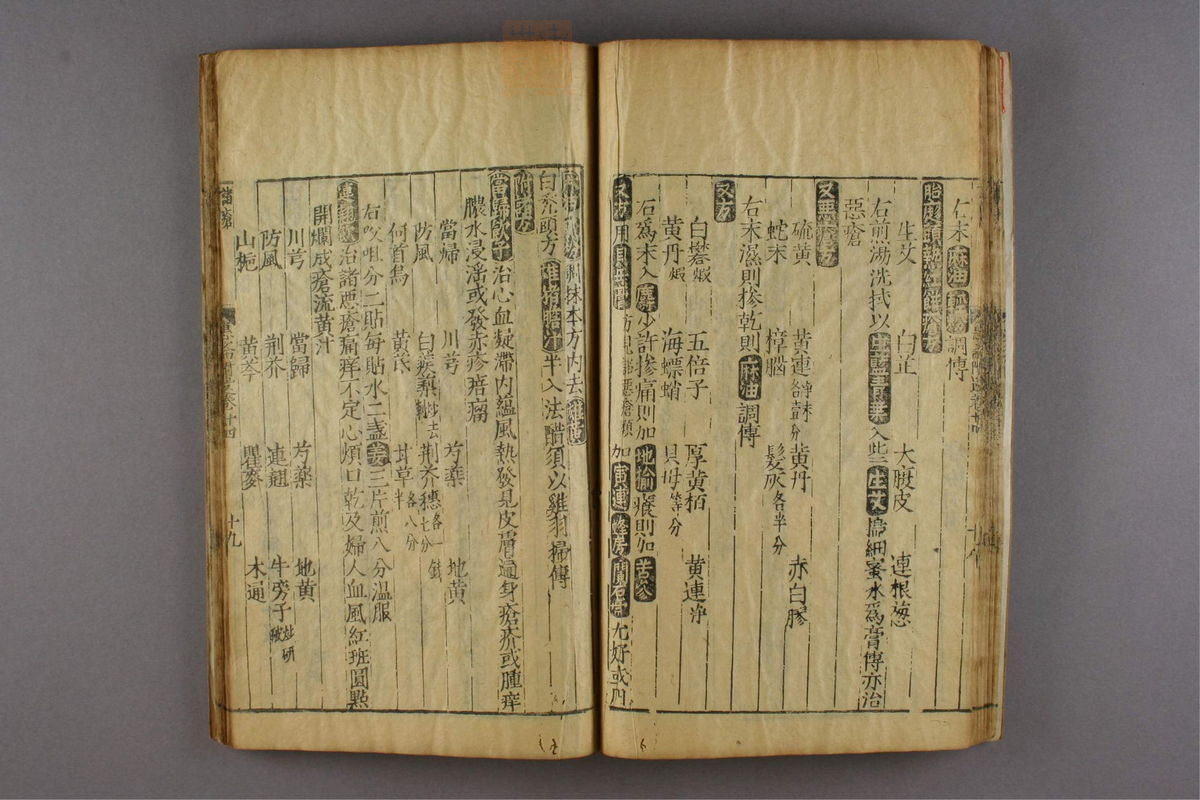 仁末麻油輕粉調傅
胎髮頭熱瘡餅瘡方
生艾 白芷 大腹皮 連根葱
右煎湯洗拭以生藍青葉入些生艾搗細蜜水爲膏傅亦治
惡瘡
又惡瘡方
硫黄 黄連各錢 黄丹 赤白膠
蛇末 樟腦 髮灰各半分
右末濕則摻乾則麻油調傅
又方
白礬煆 五倍子 厚黄栢 黄連净
黄丹煆 海螵蛸 貝母等分
石爲末入麝少許摻痛則加地榆痛則加苦參
又方用 加黄連蜂房 尤好或丹
調抹本方内去雄黄
白禿頭方雄猪膽汁半入法醋須以雞羽掃傅
附頭方
當歸飲子治心血凝滯内蘊風熱發見皮膚遍身瘡疥或腫痒
膿水浸淫或發赤疹瘖瘤
當歸 川芎 芍藥 地黄
防風 白蒺藜炒去 荆芥穗各一錢
何首烏 黄芪 甘草半
右㕮咀分二貼每貼水二盞姜三片煎八分温服
治諸惡瘡痛痒不定心煩口乾及婦人血風紅班圓點
開爛成瘡流黄汁
川芎 當歸 芍藥 地黄
防風 荆芥 連翹 牛旁子
山梔 黄芩 瞿麥 木通
諸瘡
十九